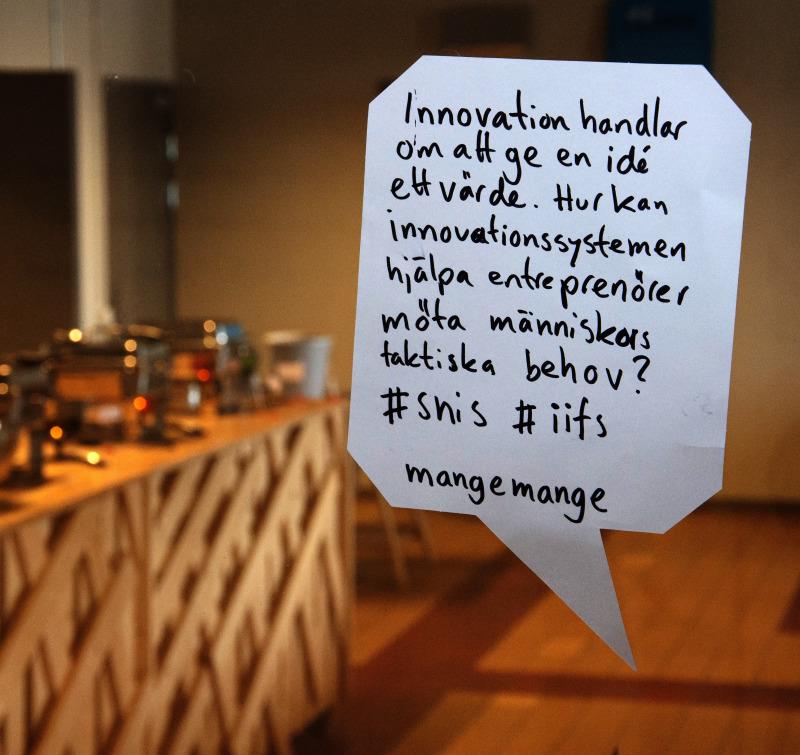 Innovation handlar
om att ge en idé
ett värde. Hur kan
innovationssystemen
hjälpa entreprenörer
möta människors
taktiska behov?
#snis #iifs
mangemange